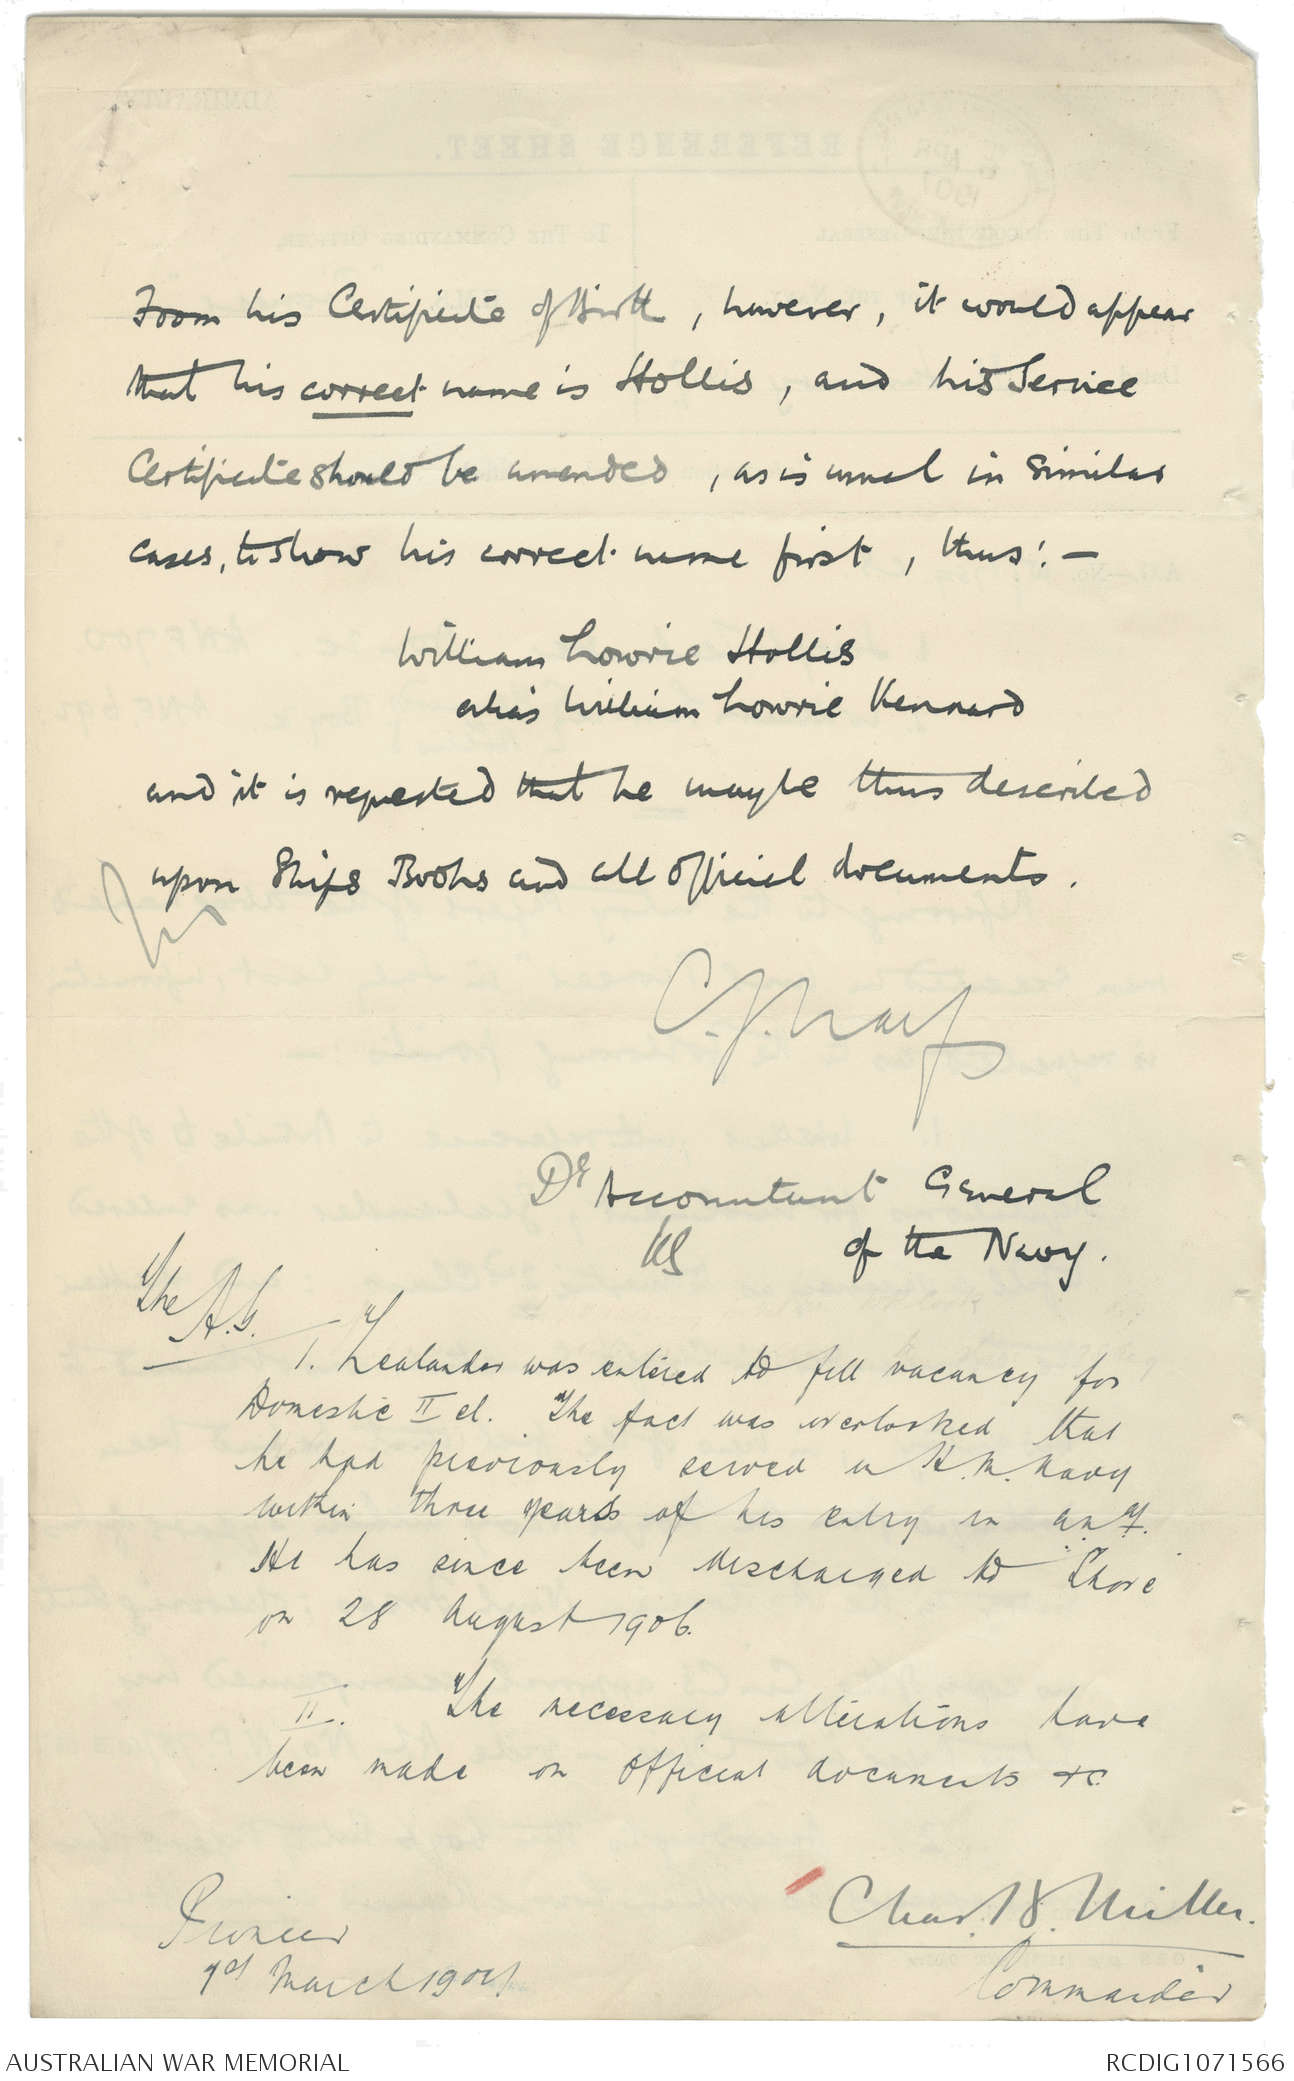 From his Certificate of Birth, however, it would appear
that his correct name is Hollis, and his Service
Certificate should be amended, as is usual in similar
cases, to show his correct name first, thus:—
William Lowrie Hollis
alias William Lowrie Kennard
and it is requested that he may be thus described
upon Ships Books and all official documents.
C. J.
Dr Accountant General
of the Navy.
The A.G.
1. Zealander was entered to fill vacancy for
Domestic II cl. The fact was overlooked that
he had previously served in H.M. Navy
within three years of his entry in
He has since been discharged to Shore
on 28 August 1906.
II. The necessary alterations have
been made on official documents &c.
Pioneer
March 1907
Commander
AUSTRALIAN WAR MEMORIAL
RCDIG1071566